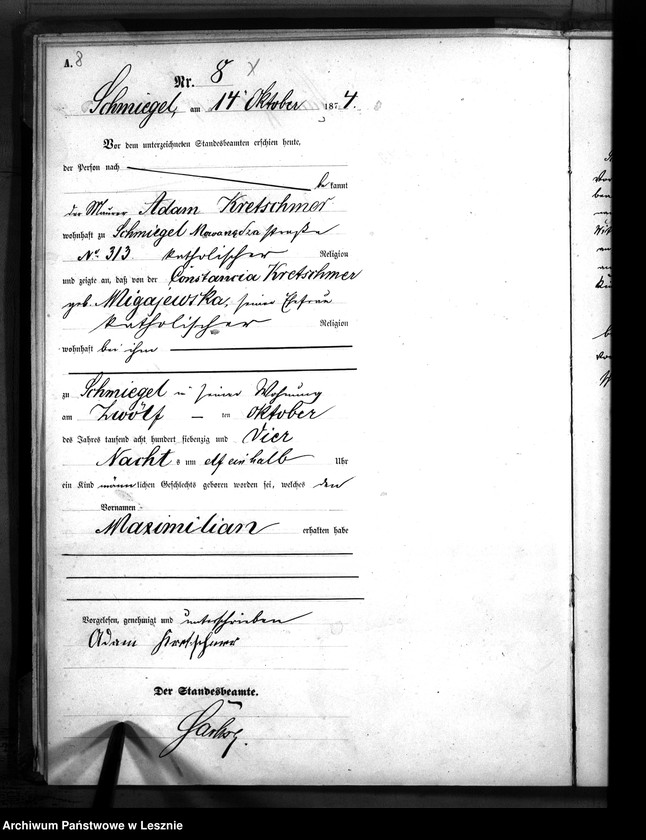 A. 8
Nr. 8
Schmiegel, am 14 Oktober 1874.
Vor dem unterzeichneten Standesbeamten erschien heute,
der Person nach
bekannt
der Maurer Adam Kretschmer
wohnhaft zu Schmiegel straße
No. 313. katholischer Religion
und zeigte an, daß von der Constancia Kretschmer
geb. Migajewska, seiner Ehefrau
katholischer Religion
wohnhaft bei ihm
zu Schmiegel in seiner Wohnung
am Zwölf ten Oktober
des Jahres tausend acht hundert siebenzig und Vier
Nachts um elf ein halb Uhr
ein Kind männlichen Geschlechts geboren worden sei, welches den
Vornamen
Maximilian erhalten habe
Vorgelesen, genehmigt und unterschrieben
Adam Kretschmer
Der Standesbeamte.
Archiwum Państwowe w Lesznie